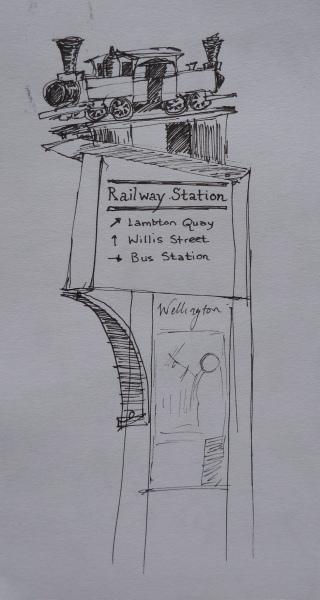 Railway Station
↗ Lambton Quay
↑ Willis Street
→ Bus Station
Wellington